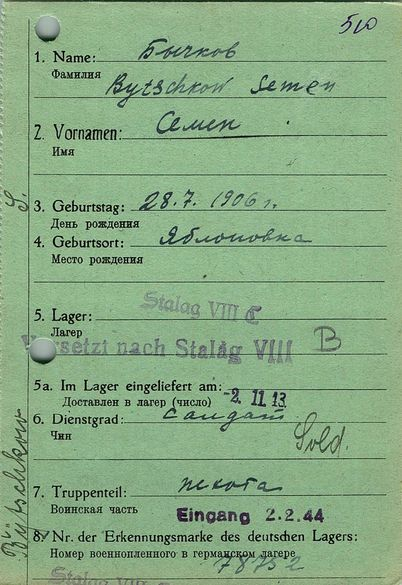 510
1. Name: Бычков
Фамилия
Bytschkow Semen
2. Vornamen: Семен
Имя
3. Geburtstag: 28.7.1906 г.
День рождения
4. Geburtsort: Яблоновка
Место рождения
Stalag VIII C
5. Lager:
Лагер
Versetzt nach Stalag VIII B
5a. Im Lager eingeliefert am:
Доставлен в лагер (число) -2. 11. 13
6. Dienstgrad: салдат
Чин
Sold.
7. Truppenteil: пехота
Воинская часть
Eingang 2.2.44
8. Nr. der Erkennungsmarke des deutschen Lagers:
Номер военнопленного в германском лагере
78752
Stalag VIII C
S.
Bytschkow